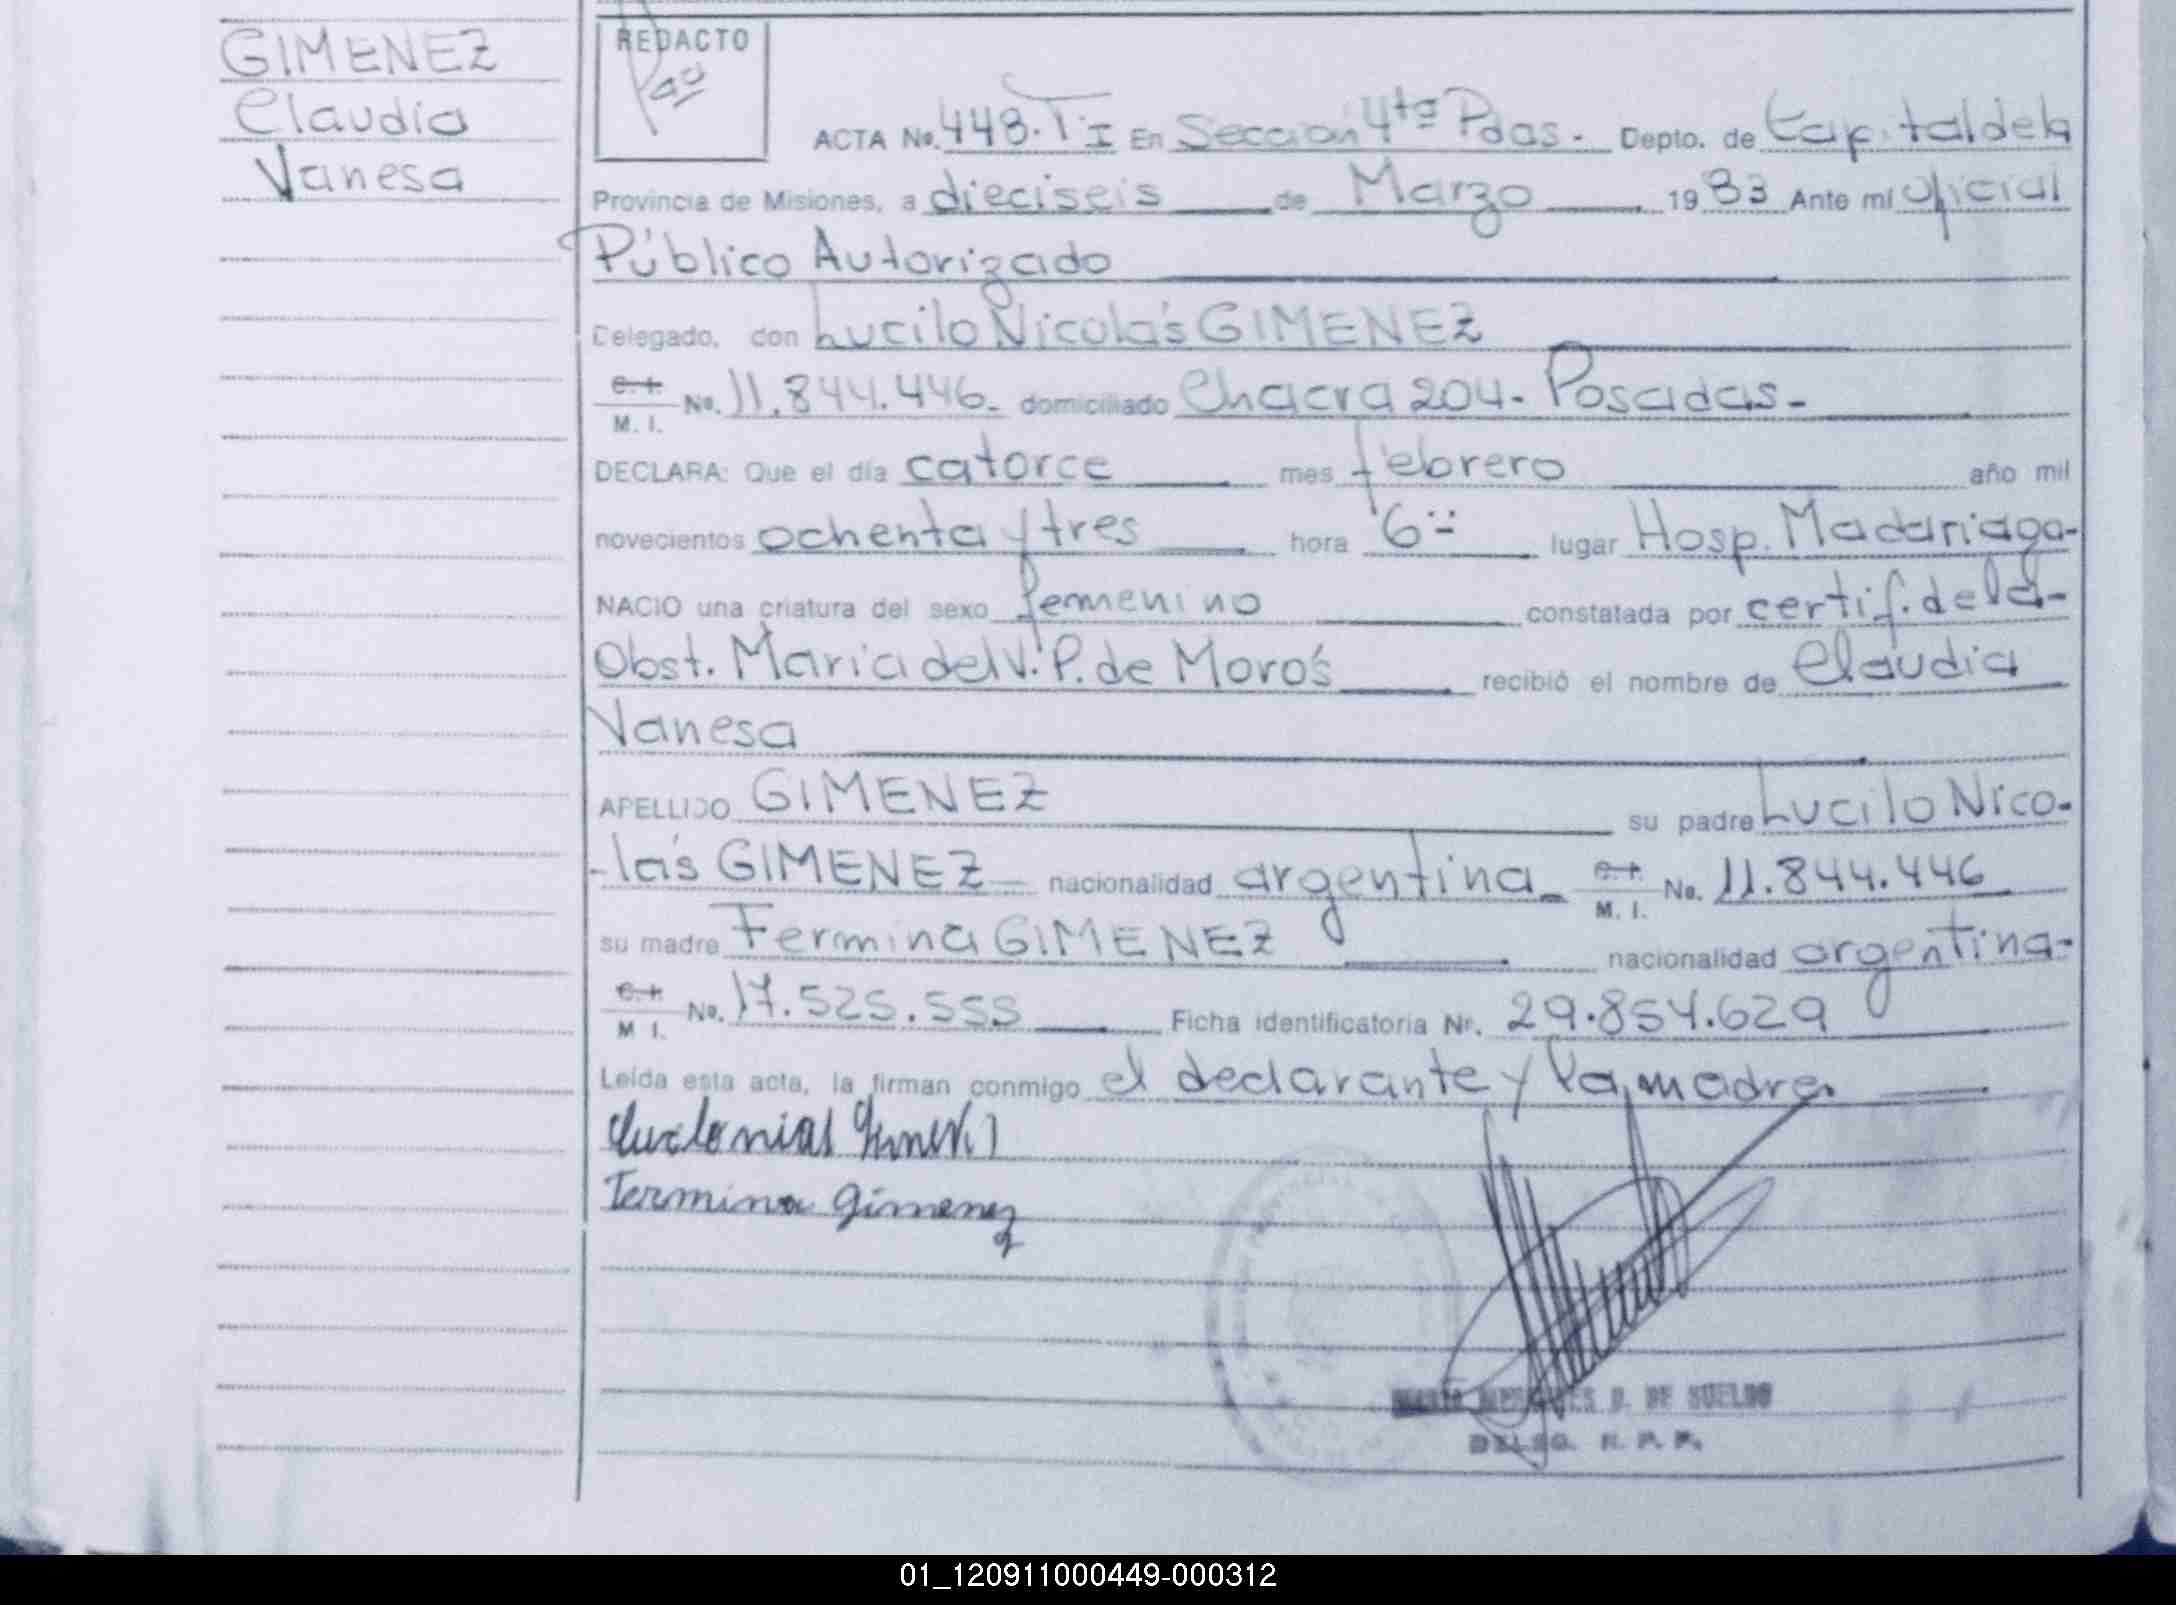 GIMENEZ
Claudia
Vanesa
REDACTO
ACTA No. 448. T: I En Sección 4ta Pdas. - Depto. de Capital de la
Provincia de Misiones, a dieciseis de Marzo 1983 Ante mí Oficial
Público Autorizado
Delegado, don Lucilo Nicolás GIMENEZ
C. I.
M. I. No. 11.844.446. domiciliado Chacra 204 - Posadas -
DECLARA: Que el día catorce mes febrero año mil
novecientos ochenta y tres hora 6 lugar Hosp. Madariaga-
NACIO una criatura del sexo femenino constatada por certif. de la -
Obst. María del V. P. de Moros recibió el nombre de Claudia
Vanesa
APELLIDO GIMENEZ su padre Lucilo Nico-
-lás GIMENEZ nacionalidad argentina - C. I.
M. I. No. 11.844.446
su madre Fermina GIMENEZ nacionalidad argentina -
C. I.
M. I. No. 17.525.555 Ficha identificatoria Nr. 29.854.629
Leída esta acta, la firman conmigo el declarante y la madre.
Fermina Gimenez
P. DE SUELDO
DELEG. R. P. P.
01_120911000449-000312